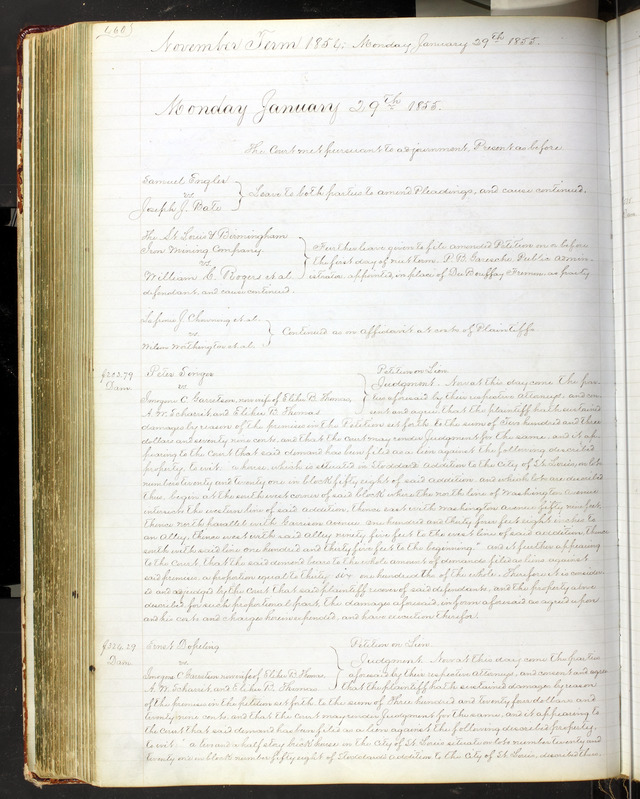 460
November Term 1854. Monday January 29th 1855.
Monday January 29th 1855.
The Court met pursuant to adjournment. Present as before
Samuel Engler
vs
Joseph J. Bates
Leave to both parties to amend Pleadings, and cause continued.
The St Louis & Birmingham
Iron Mining Company
vs
William C. Rogers et al
Further leave given to file amended Petition on or before
the first day of next term. P. B. Garesche Public Admin-
istrator appointed, in place of Du Bouffay Fremon as party
defendant, and cause continued.
J. Chauning et al
vs
Wilson Worthington et al.
Continued as on affidavit at costs of Plaintiffs
$203.79
Dam
Peter
vs
Imogine C. Garretson, now wife of Elihu B. Thomas
A. M. and Elihu B. Thomas
Petition on Lien
Judgment. Now at this day come the par-
ties aforesaid by their respective Attorneys, and con-
sent and agree that the plaintiff hath sustained
damages by reason of the premises in the Petition set forth to the sum of Two hundred and three
dollars and seventy nine cents, and that the court may render Judgment for the same, and it ap-
pearing to the Court that said demand has been filed as a lien against the following described
property, to wit. a house, which is situated in Stoddard addition to the City of St Louis, on lots
number twenty and twenty one in block fifty eight of said addition, and which lots are described
thus, begin at the southwest corner of said block where the north line of Washington Avenue
intersects the western line of said addition, thence east with Washington Avenue fifty nine feet,
thence north parallel with Garrison Avenue one hundred and thirty four feet eight inches to
an alley, thence west with said alley ninety five feet to the west line of said addition, thence
south with said line one hundred and thirty five feet to the beginning." and it further appearing
to the Court, that the said demand bears to the whole amount of demands filed as liens against
said premises, a proportion equal to thirty six one hundredths of the whole. Therefore it is consider-
ed and adjudged by the Court that said plaintiff recover of said defendants, and the property above
described for such proportional part, the damages aforesaid, in form aforesaid as agreed upon
and his costs and charges herein expended, and have execution therefor.
$324.29
Dam
Ernst
vs
Imogine C. Garretson now wife of Elihu B. Thomas
A. M. and Elihu B. Thomas
Petition on Lien
Judgment. Now at this day come the parties
aforesaid by their respective Attorneys, and consent and agree
that the plaintiff hath sustained damages by reason
of the premises in the petition set forth to the sum of Three hundred and twenty four dollars and
twenty nine cents, and that the court may render judgment for the same, and it appearing to
the court that said demand has been filed as a lien against the following described property,
to wit. a two and a half story brick house in the City of St Louis situate on lots number twenty and
twenty one in block number fifty eight of Stoddards addition to the City of St Louis, described thus.